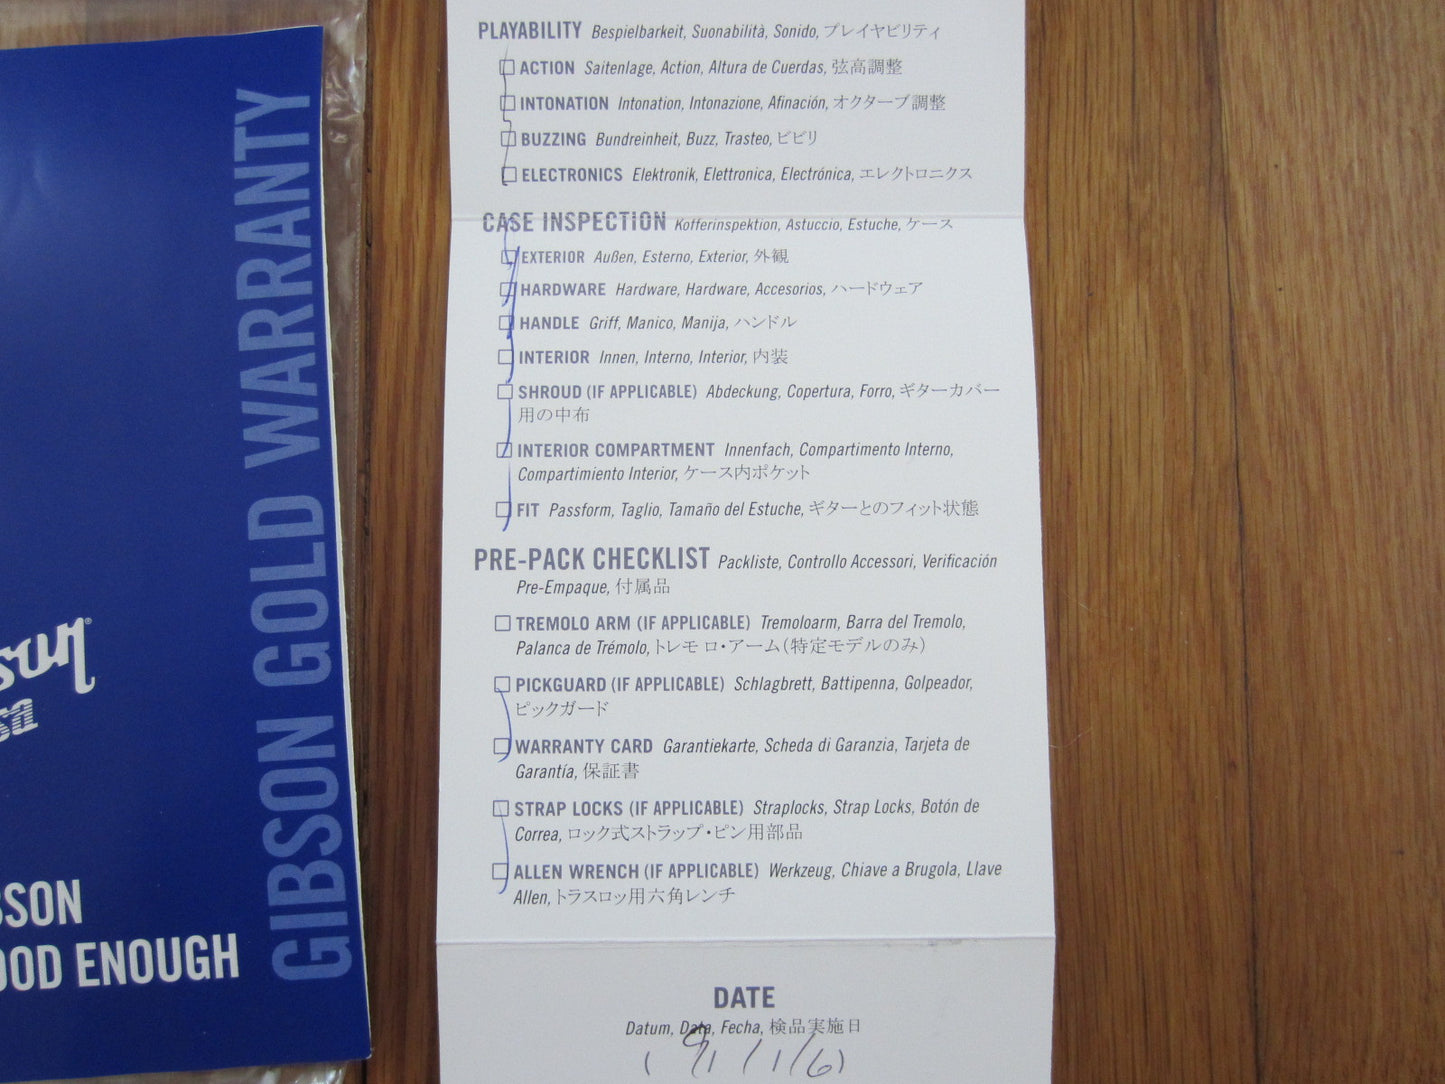 GIBSON GOLD WARRANTY
OOD ENOUGH
PLAYABILITY Bespielbarkeit, Suonabilità, Sonido, プレイヤビリティ
ACTION Saitenlage, Action, Altura de Cuerdas, 弦高調整
INTONATION Intonation, Intonazione, Afinación, オクターブ調整
BUZZING Bundreinheit, Buzz, Trasteo, ビビリ
ELECTRONICS Elektronik, Elettronica, Electrónica, エレクトロニクス
CASE INSPECTION Kofferinspektion, Astuccio, Estuche, ケース
EXTERIOR Außen, Esterno, Exterior, 外観
HARDWARE Hardware, Hardware, Accesorios, ハードウェア
HANDLE Griff, Manico, Manija, ハンドル
INTERIOR Innen, Interno, Interior, 内装
SHROUD (IF APPLICABLE) Abdeckung, Copertura, Forro, ギターカバー
用の中布
INTERIOR COMPARTMENT Innenfach, Compartimento Interno,
Compartimiento Interior, ケース内ポケット
FIT Passform, Taglio, Tamaño del Estuche, ギターとのフィット状態
PRE-PACK CHECKLIST Packliste, Controllo Accessori, Verificación
Pre-Empaque, 付属品
TREMOLO ARM (IF APPLICABLE) Tremoloarm, Barra del Tremolo,
Palanca de Trémolo, トレモロ・アーム(特定モデルのみ)
PICKGUARD (IF APPLICABLE) Schlagbrett, Battipenna, Golpeador,
ピックガード
WARRANTY CARD Garantiekarte, Scheda di Garanzia, Tarjeta de
Garantía, 保証書
STRAP LOCKS (IF APPLICABLE) Straplocks, Strap Locks, Botón de
Correa, ロック式ストラップ・ピン用部品
ALLEN WRENCH (IF APPLICABLE) Werkzeug, Chiave a Brugola, Llave
Allen, トラスロッ用六角レンチ
DATE
Datum, Data, Fecha, 検品実施日